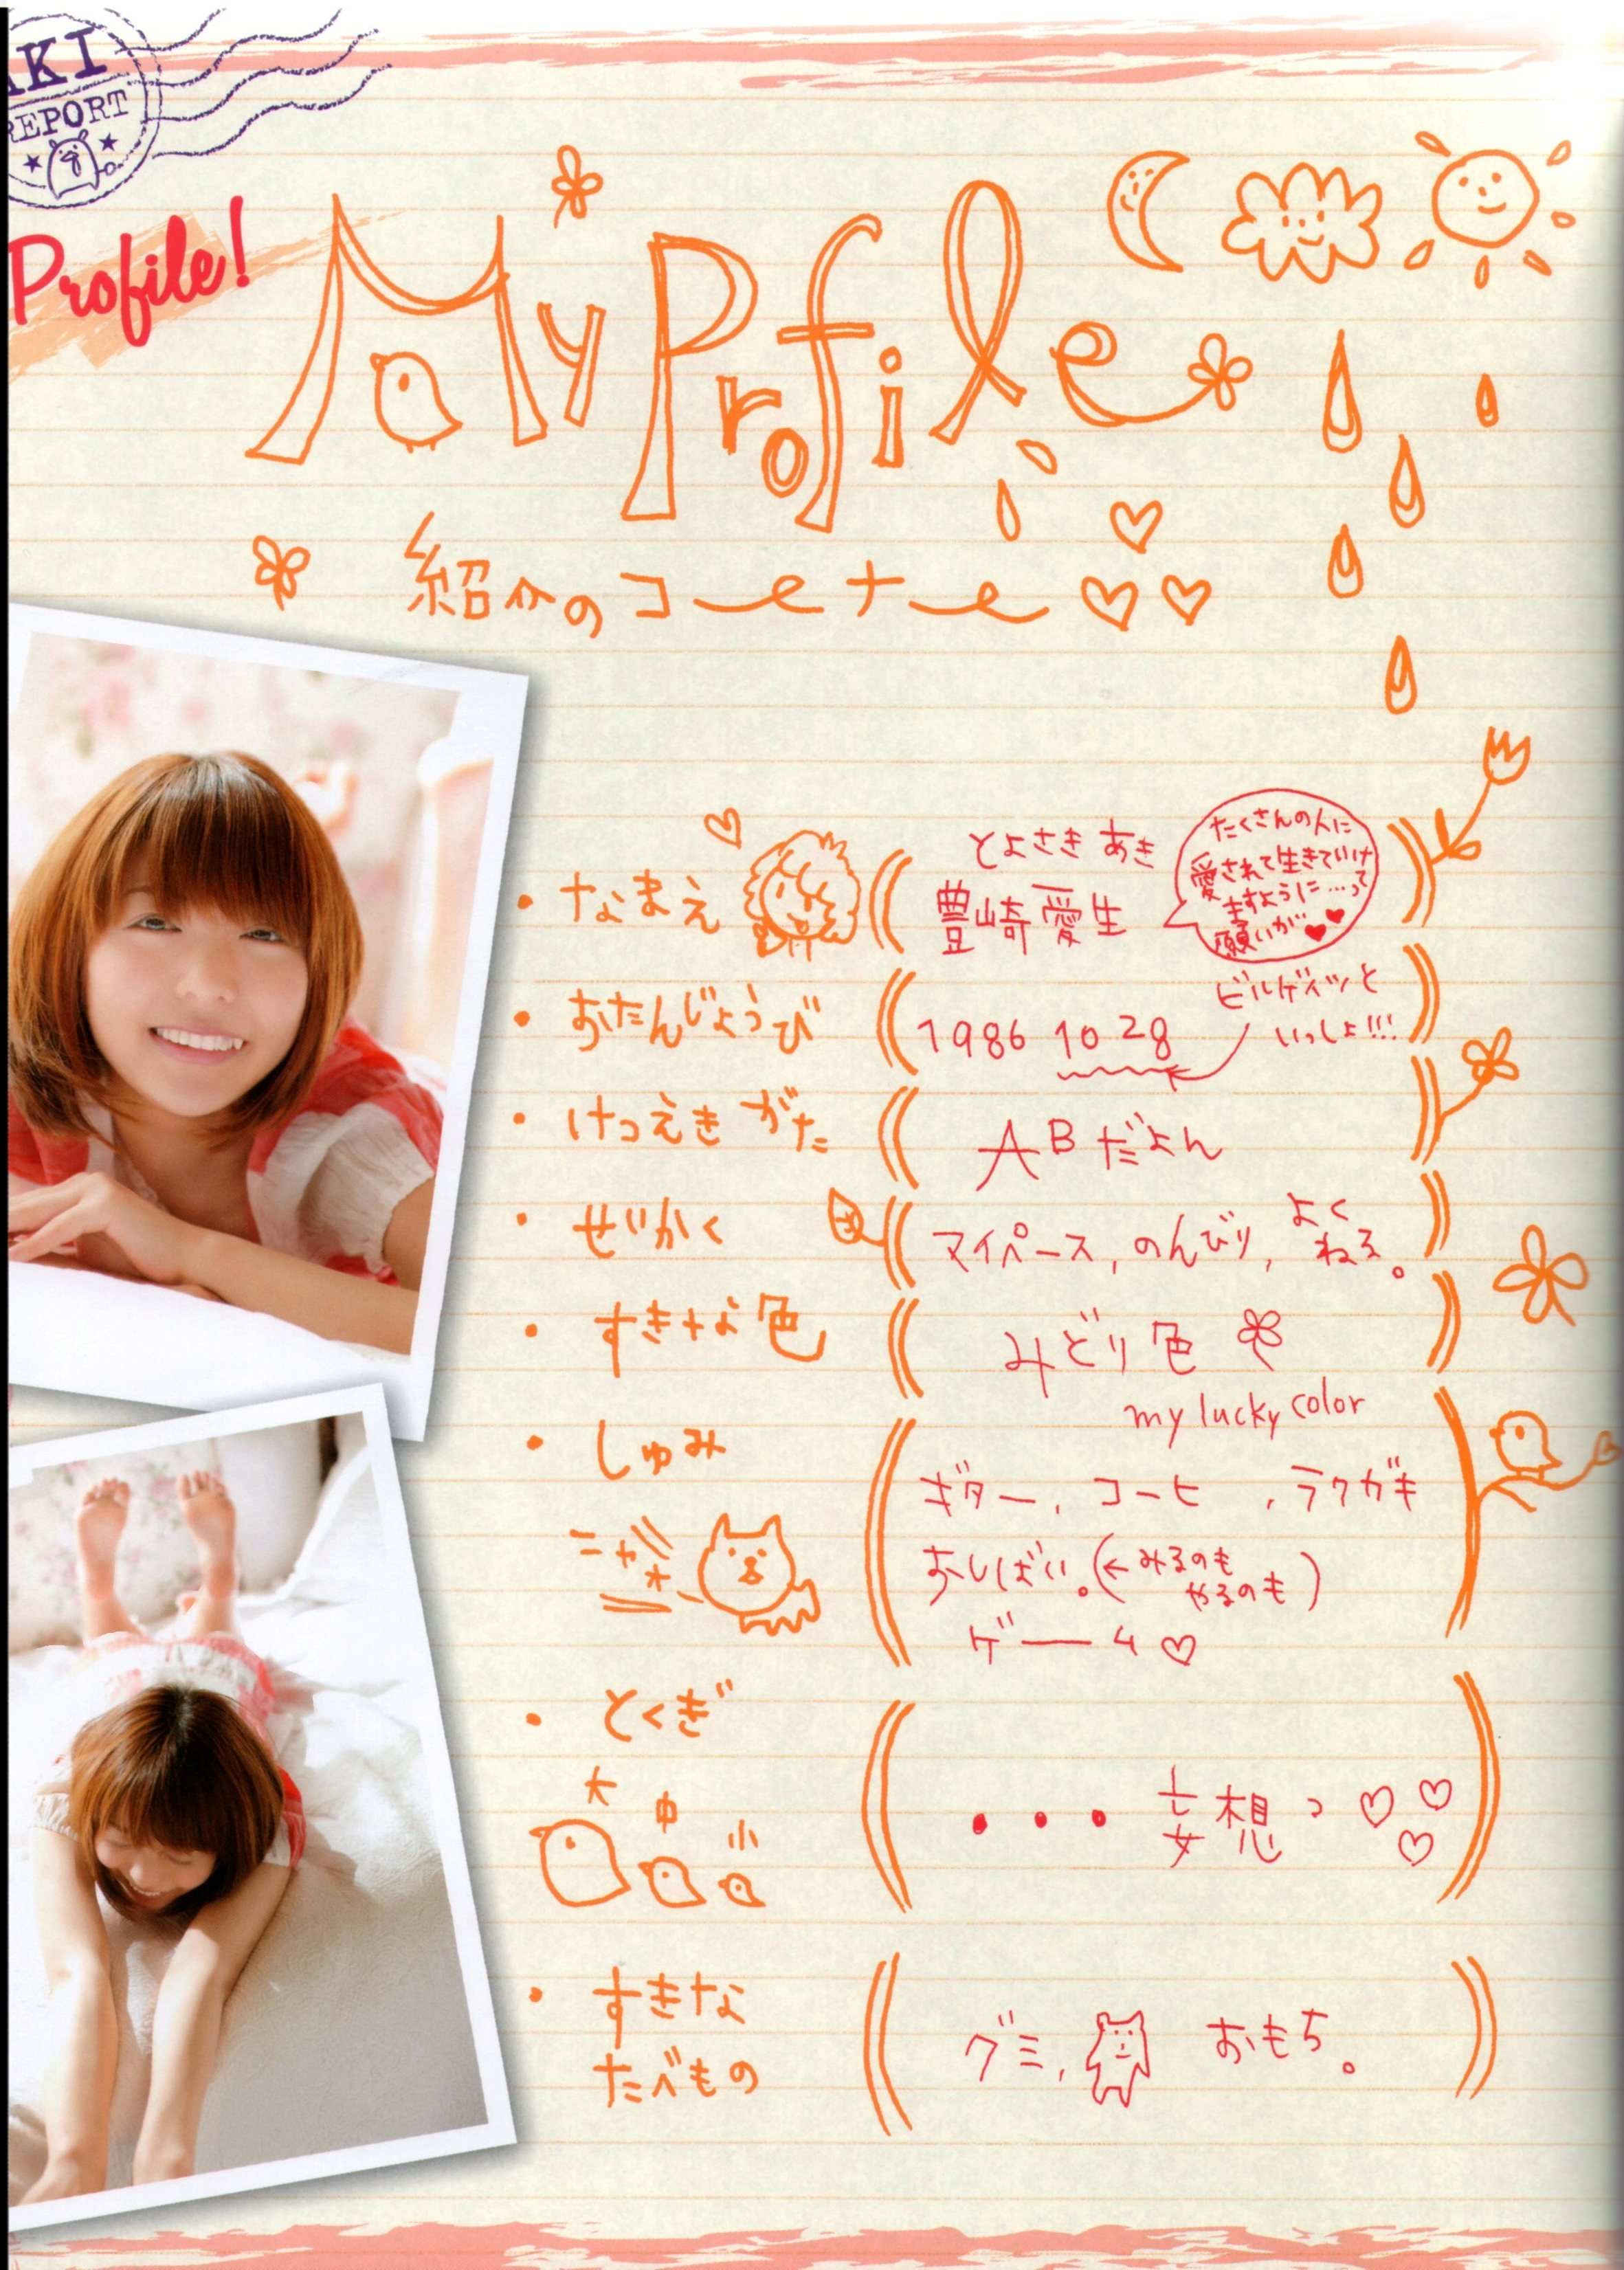 AKI
REPORT
Profile!
My Profile
紹かのコーナー
・なまえ
とよさき あき
豊崎愛生
たくさんの人に
愛されて生きていけ
ますように…って
願いが
・おたんじょうび
1986 10 28
ビルゲイツと
いっしょ!!!
・けつえきがた
ABだよん
・せいかく
マイペース, のんびり, よく
ねる。
・すきな色
みどり色
my lucky color
・しゅみ
ギター, コーヒー, ラクガキ
おしばい。(←みるのも
やるのも)
ゲーム♡
・とくぎ
大 中 小
・・・妄想っ♡♡♡
・すきな
たべもの
グミ, おもち。